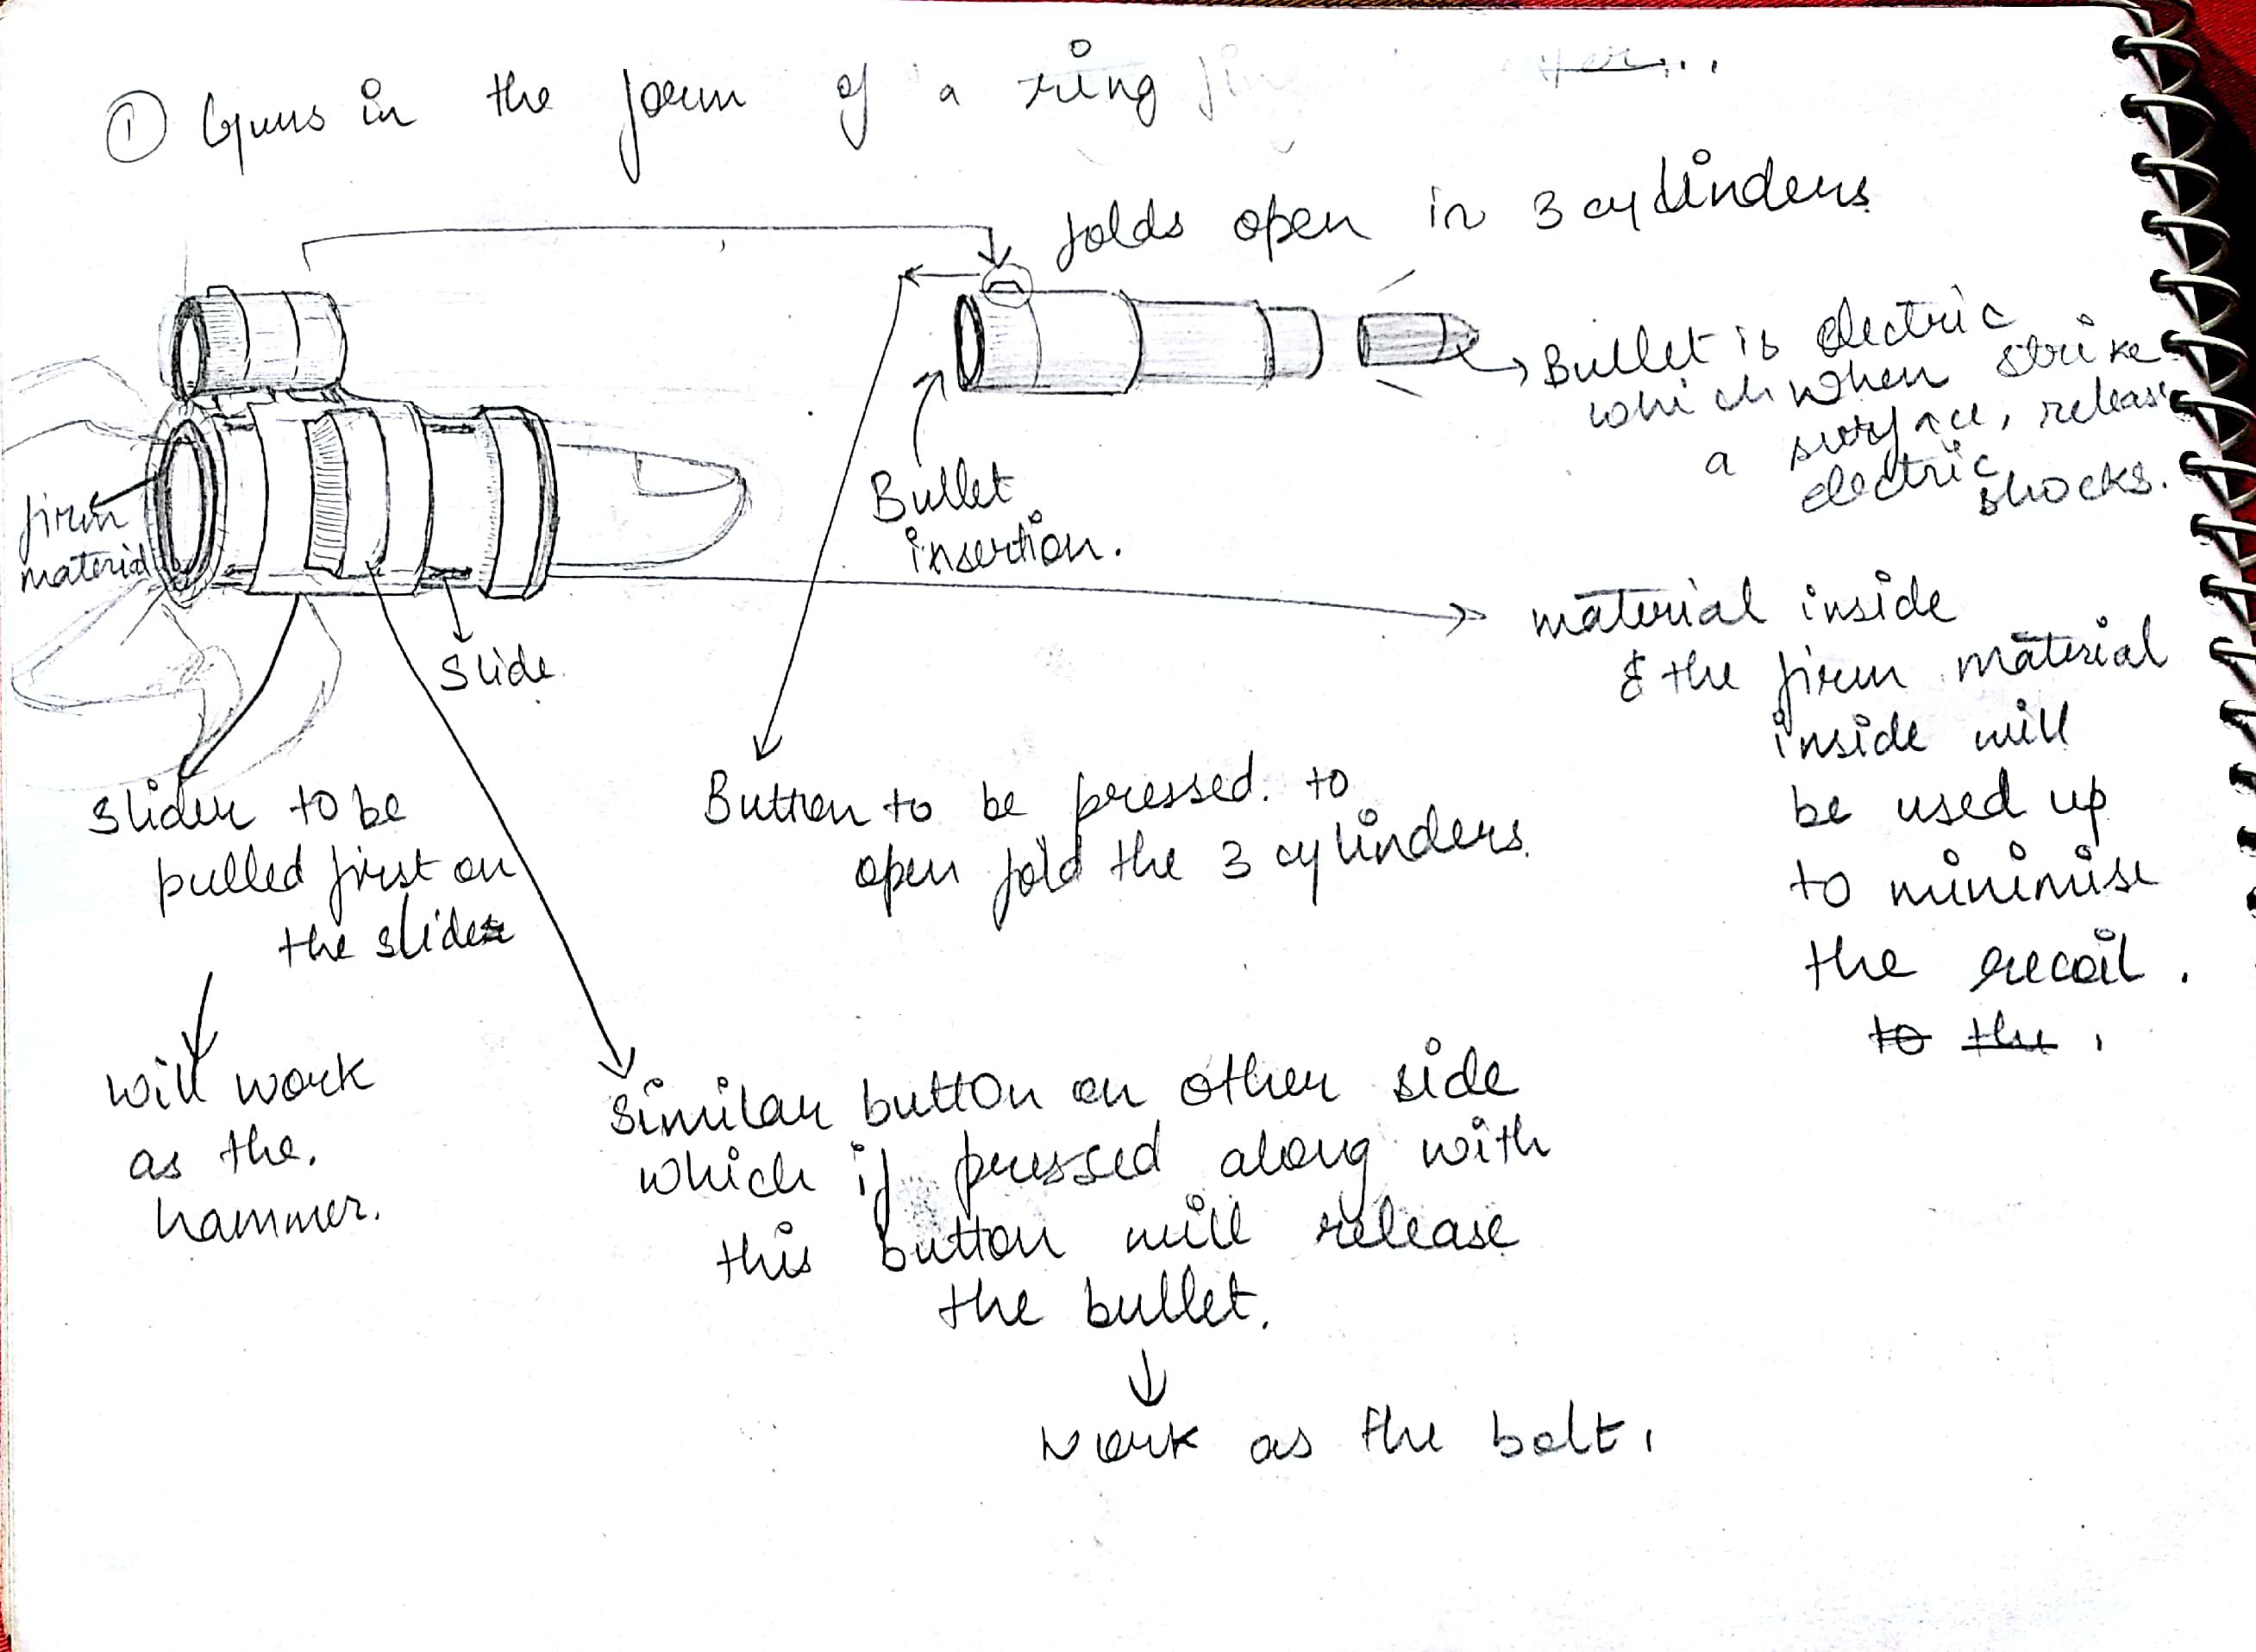 ① Guns in the form of a ring
folds open in 3 cylinders
Bullet is electric
which when strike
a surface, release
electric
shocks.
Bullet
insertion.
firm
material
Slide
material inside
& the firm material
inside will
be used up
to minimise
the recoil.
to the.
Slider to be
pulled first on
the slide
will work
as the.
hammer.
Button to be pressed. to
open fold the 3 cylinders.
Similar button on other side
which if pressed along with
this button will release
the bullet.
work as the bolt.